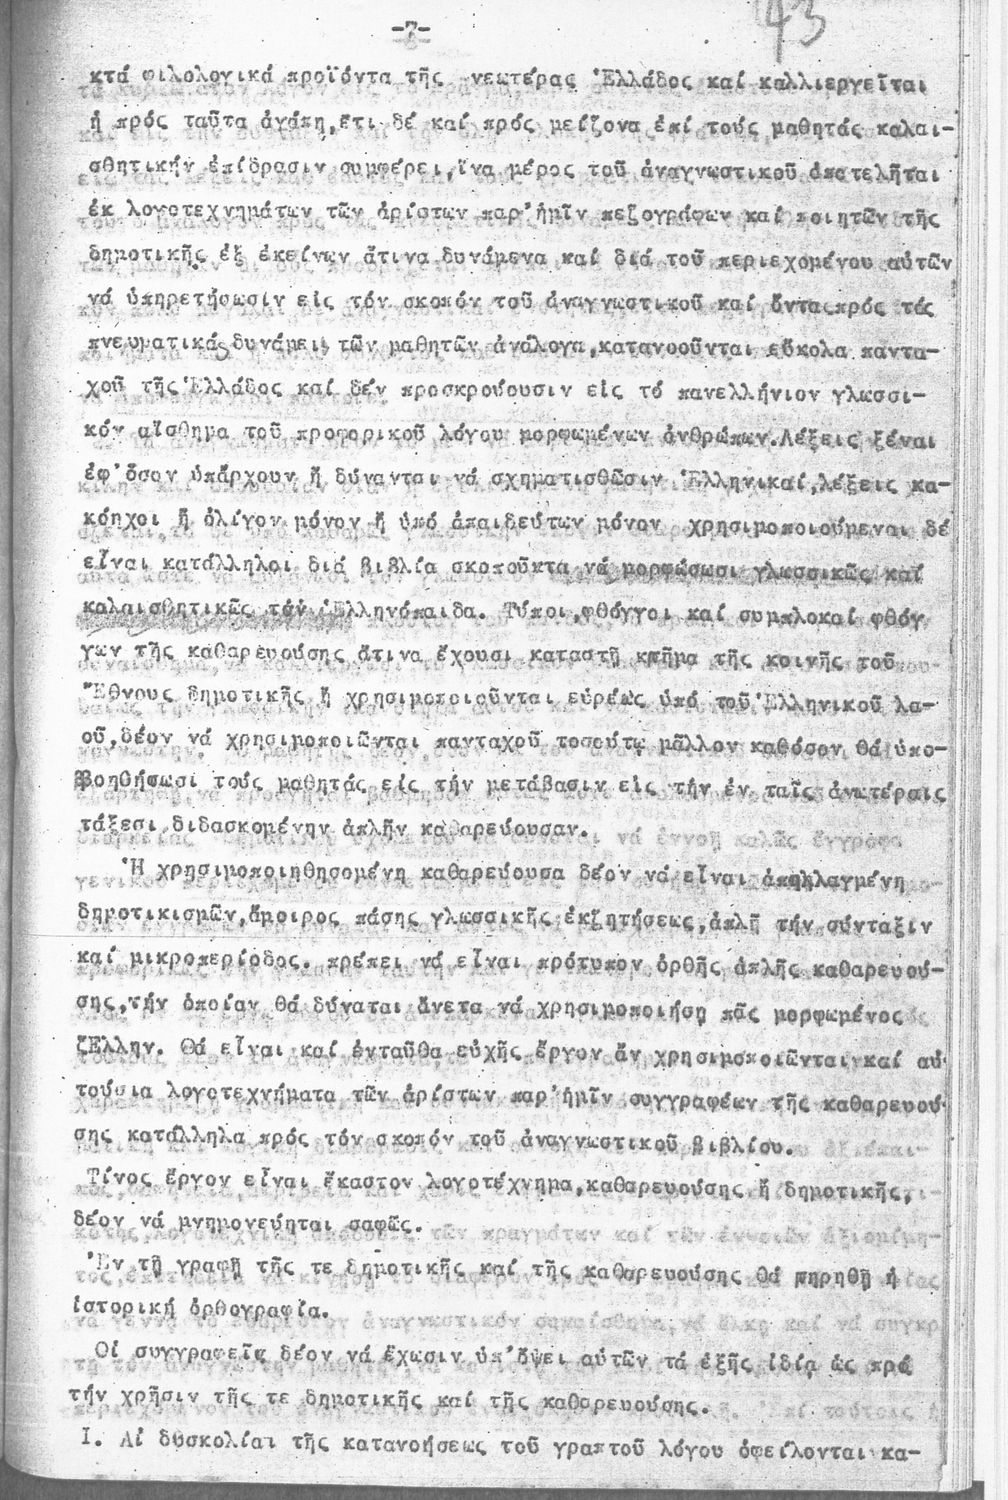 -7-
43
κτά φιλολογικά προϊόντα τῆς νεωτέρας Ἑλλάδος καί καλλιεργεῖται
ἡ πρός ταῦτα ἀγάπη, ἔτι δέ καί πρός μείζονα ἐπί τούς μαθητάς καλαι-
σθητικήν ἐπίδρασιν συμφέρει, ἵνα μέρος τοῦ ἀναγνωστικοῦ ἀποτελῆται
ἐκ λογοτεχνημάτων τῶν ἀρίστων παρ' ἡμῖν πεζογράφων καί ποιητῶν τῆς
δημοτικῆς ἐξ ἐκείνων ἅτινα δυνάμενα καί διά τοῦ περιεχομένου αὐτῶν
νά ὑπηρετήσωσιν εἰς τόν σκοπόν τοῦ ἀναγνωστικοῦ καί ὄντα πρός τάς
πνευματικάς δυνάμεις τῶν μαθητῶν ἀνάλογα, κατανοοῦνται εὔκολα παντα-
χοῦ τῆς Ἑλλάδος καί δέν προσκρούουσιν εἰς τό πανελλήνιον γλωσσι-
κόν αἴσθημα τοῦ προφορικοῦ λόγου μορφωμένων ἀνθρώπων. Λέξεις ξέναι
ἐφ' ὅσον ὑπάρχουν ἤ δύνανται νά σχηματισθῶσιν Ἑλληνικαί, λέξεις κα-
κόηχοι ἤ ὀλίγον μόνον ἤ ὑπό ἀπαιδεύτων μόνον χρησιμοποιούμεναι δέ
εἶναι κατάλληλοι διά βιβλία σκοποῦντα νά μορφώσωσι γλωσσικῶς καί
καλαισθητικῶς τόν Ἑλληνόπαιδα. Τύποι, φθόγγοι καί συμπλοκαί φθόγ
γων τῆς καθαρευούσης ἅτινα ἔχουσι καταστῆ κτῆμα τῆς κοινῆς τοῦ
Ἔθνους δημοτικῆς ἤ χρησιμοποιοῦνται εὐρέως ὑπό τοῦ Ἑλληνικοῦ λα-
οῦ, δέον νά χρησιμοποιῶνται πανταχοῦ τοσούτῳ μᾶλλον καθόσον θά ὑπο-
βοηθήσωσι τούς μαθητάς εἰς τήν μετάβασιν εἰς τήν ἐν ταῖς ἀνωτέραις
τάξεσι διδασκομένην ἁπλῆν καθαρεύουσαν.
Ἡ χρησιμοποιηθησομένη καθαρεύουσα δέον νά εἶναι ἀπηλλαγμένη
δημοτικισμῶν, ἄμοιρος πάσης γλωσσικῆς ἐκζητήσεως, ἁπλῆ τήν σύνταξιν
καί μικροπερίοδος. πρέπει νά εἶναι πρότυπον ὀρθῆς ἁπλῆς καθαρευού-
σης, τήν ὁποίαν θά δύναται ἄνετα νά χρησιμοποιήσῃ πᾶς μορφωμένος
Ἕλλην. Θά εἶναι καί ἐνταῦθα εὐχῆς ἔργον ἄν χρησιμοποιῶνται καί αὐ
τούσια λογοτεχνήματα τῶν ἀρίστων παρ' ἡμῖν συγγραφέων τῆς καθαρευού-
σης κατάλληλα πρός τόν σκοπόν τοῦ ἀναγνωστικοῦ βιβλίου.
Τίνος ἔργον εἶναι ἕκαστον λογοτέχνημα, καθαρευούσης ἤ δημοτικῆς,
δέον νά μνημονεύηται σαφῶς.
Ἐν τῇ γραφῇ τῆς τε δημοτικῆς καί τῆς καθαρευούσης θά τηρηθῇ ἡ
ἱστορική ὀρθογραφία.
Οἱ συγγραφεῖς δέον νά ἔχωσιν ὑπ' ὄψει αὐτῶν τά ἑξῆς ἰδίᾳ ὡς πρό
τήν χρῆσιν τῆς τε δημοτικῆς καί τῆς καθαρευούσης.
Ι. Αἱ δυσκολίαι τῆς κατανοήσεως τοῦ γραπτοῦ λόγου ὀφείλονται κα-